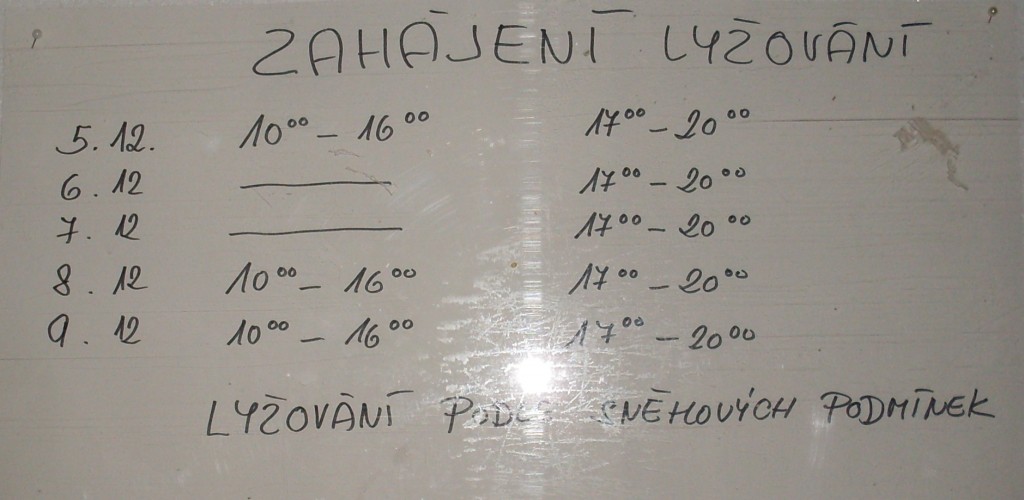 ZAHÁJENÍ LYŽOVÁNÍ
5. 12. 10⁰⁰ – 16⁰⁰ 17⁰⁰ – 20⁰⁰
6. 12 ——— 17⁰⁰ – 20⁰⁰
7. 12 ——— 17⁰⁰ – 20⁰⁰
8. 12 10⁰⁰ – 16⁰⁰ 17⁰⁰ – 20⁰⁰
9. 12 10⁰⁰ – 16⁰⁰ 17⁰⁰ – 20⁰⁰
LYŽOVÁNÍ PODLE SNĚHOVÝCH PODMÍNEK